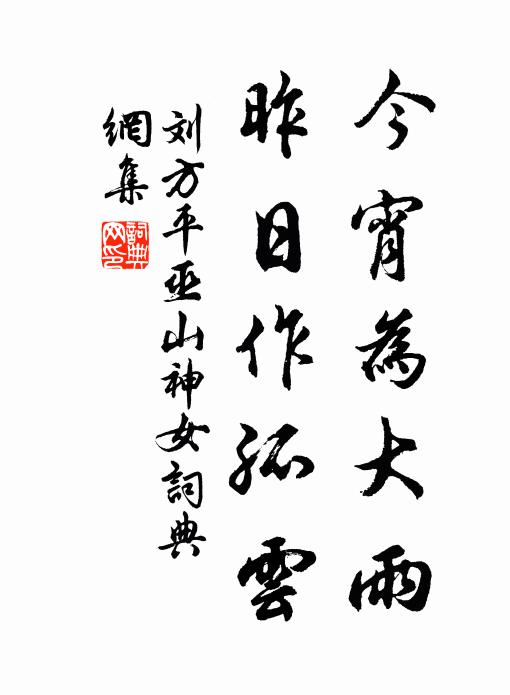 今宵為大雨
昨日作孤雲
刘方平巫山神女詞典
網集
詞典
网印